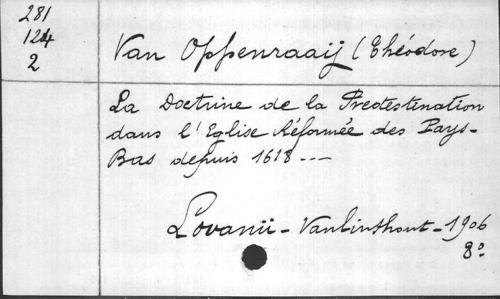 281
124
2
Van Oppenraaij (Théodore)
La Doctrine de la Prédestination
dans l'Eglise Réformée des Pays-
Bas depuis 1618 ---
Lovanii - Vanlinthout - 1906
8°